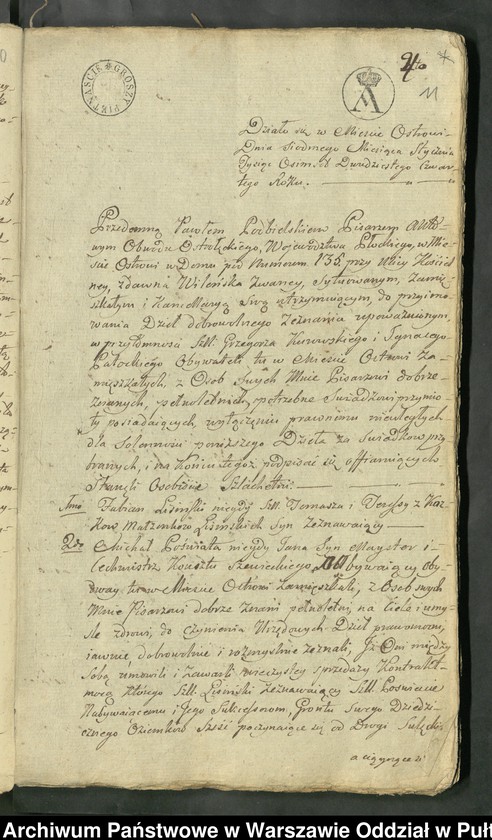 GROSZY PIĘTNAŚCIE
4to
11
Działo się w Mieście Ostrowi
Dnia Siodmego Miesiąca Stycznia
Tysiąc Osimset Dwudziestego Czwar-
tego Roku.
Przedemną Pawłem Podbielskiem Pisarzem Akto-
wym Obwodu Ostrołęckiego, Woiewodztwa Płockiego, w Mie-
ście Ostrowi w Domu pod Numerem 136. przy Ulicy Kościel-
ney, zdawna Wileńska zwaney, Sytuowanym, Zamie-
szkałym i Kancellaryą Swą utrzymuiącym, do przyimo-
wania Dzieł dobrowolnego Zeznania upoważnionym,
w przytomności Szll. Grzegorza Kurowskiego i Ignacego
Obywateli, tu w Mieście Ostrowi Za-
mieszkałych, z Osob Swych Mnie Pisarzowi dobrze
Znanych, pełnoletnich, potrzebne Swiadkowi przymio-
ty posiadaiących, wyłączeniu prawnemu nieuległych
dla Solennosci ponizszego Dzieła za Swiadkow przy-
branych, i na Koncu tegoż podpisać się offiaruiących
Stanęli Osobiście Szlachetni:
1mo Fabian Lisinski niegdy Szll. Tomasza i Teressy z
Małżonkow Lisinskich Syn Zeznawaiący
2do Michał Pośniata niegdy Jana Syn Mayster i
Cechmistrz Kunsztu Szewieckiego, Nabywaiący oby-
dway tu w Mieście Ostrowi Zamieszkali, z Osob swych
Mnie Pisarzowi dobrze Znani pełnoletni, na Ciele i umy-
sle zdrowi, do czynienia Urzędowych Dzieł prawomocni,
iawnie, dobrowolnie i rozmyslnie zeznali, Iż Oni między
Sobą umowili i Zawarli wieczystey sprzedaży Kontrakt
mocą ktorego Szll. Lisinski Zeznawaiący Szll. Pośniacie
Nabywaiącemu i Jego Sukcessorom, Gruntu Swego Dziedzi-
cznego Ozimkow Sześć poczynaiące się od Drogi
a ciągnące się
Archiwum Państwowe w Warszawie Oddział w Puł